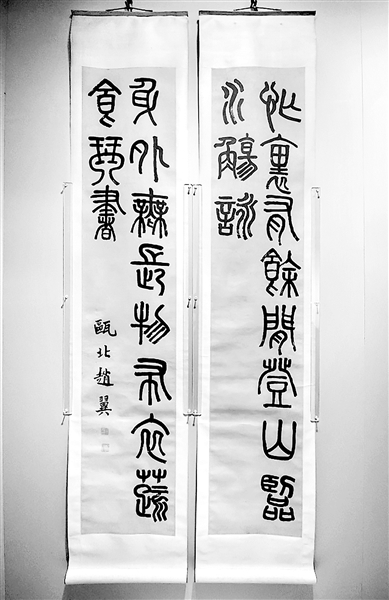 忙裏有餘閒登山臨
水觴詠
身外無長物布衣蔬
食琴書
甌北趙翼